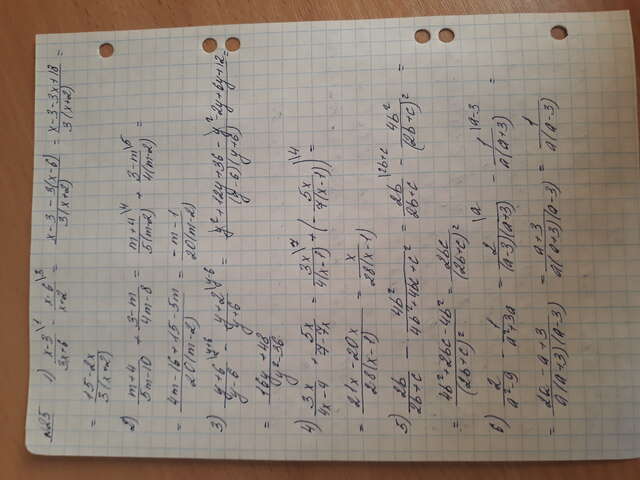 №25 1) (x-3)/(3x+6) \1 - (x-6)/(x+2) \3 = (x-3-3(x-6))/(3(x+2)) = (x-3-3x+18)/(3(x+2)) =
= (15-2x)/(3(x+2))
2) (m+4)/(5m-10) + (3-m)/(4m-8) = (m+4)/(5(m-2)) \4 + (3-m)/(4(m-2)) \5 =
= (4m-16+15-5m)/(20(m-2)) = (-m-1)/(20(m-2))
3) (y+6)/(y-6) \y+6 - (y+2)/(y+6) \y-6 = (y²+12y+36-y²-2y+6y+12)/((y-6)(y+6)) =
= (16y+48)/(y²-36)
4) 3x/(4x-4) + 5x/(7-7x) = 3x/(4(x-1)) \7 + (-5x/(7(x-1))) \4 =
= (21x-20x)/(28(x-1)) = x/(28(x-1))
5) 2b/(2b+c) - 4b²/(4b²+4bc+c²) = 2b/(2b+c) \2b+c - 4b²/(2b+c)² =
= (4b²+2bc-4b²)/(2b+c)² = 2bc/(2b+c)²
6) 2/(a²-9) - 1/(a²+3a) = 2/((a-3)(a+3)) \a - 1/(a(a+3)) \a-3 =
= (2a-a+3)/(a(a+3)(a-3)) = (a+3)/(a(a+3)(a-3)) = 1/(a(a-3))